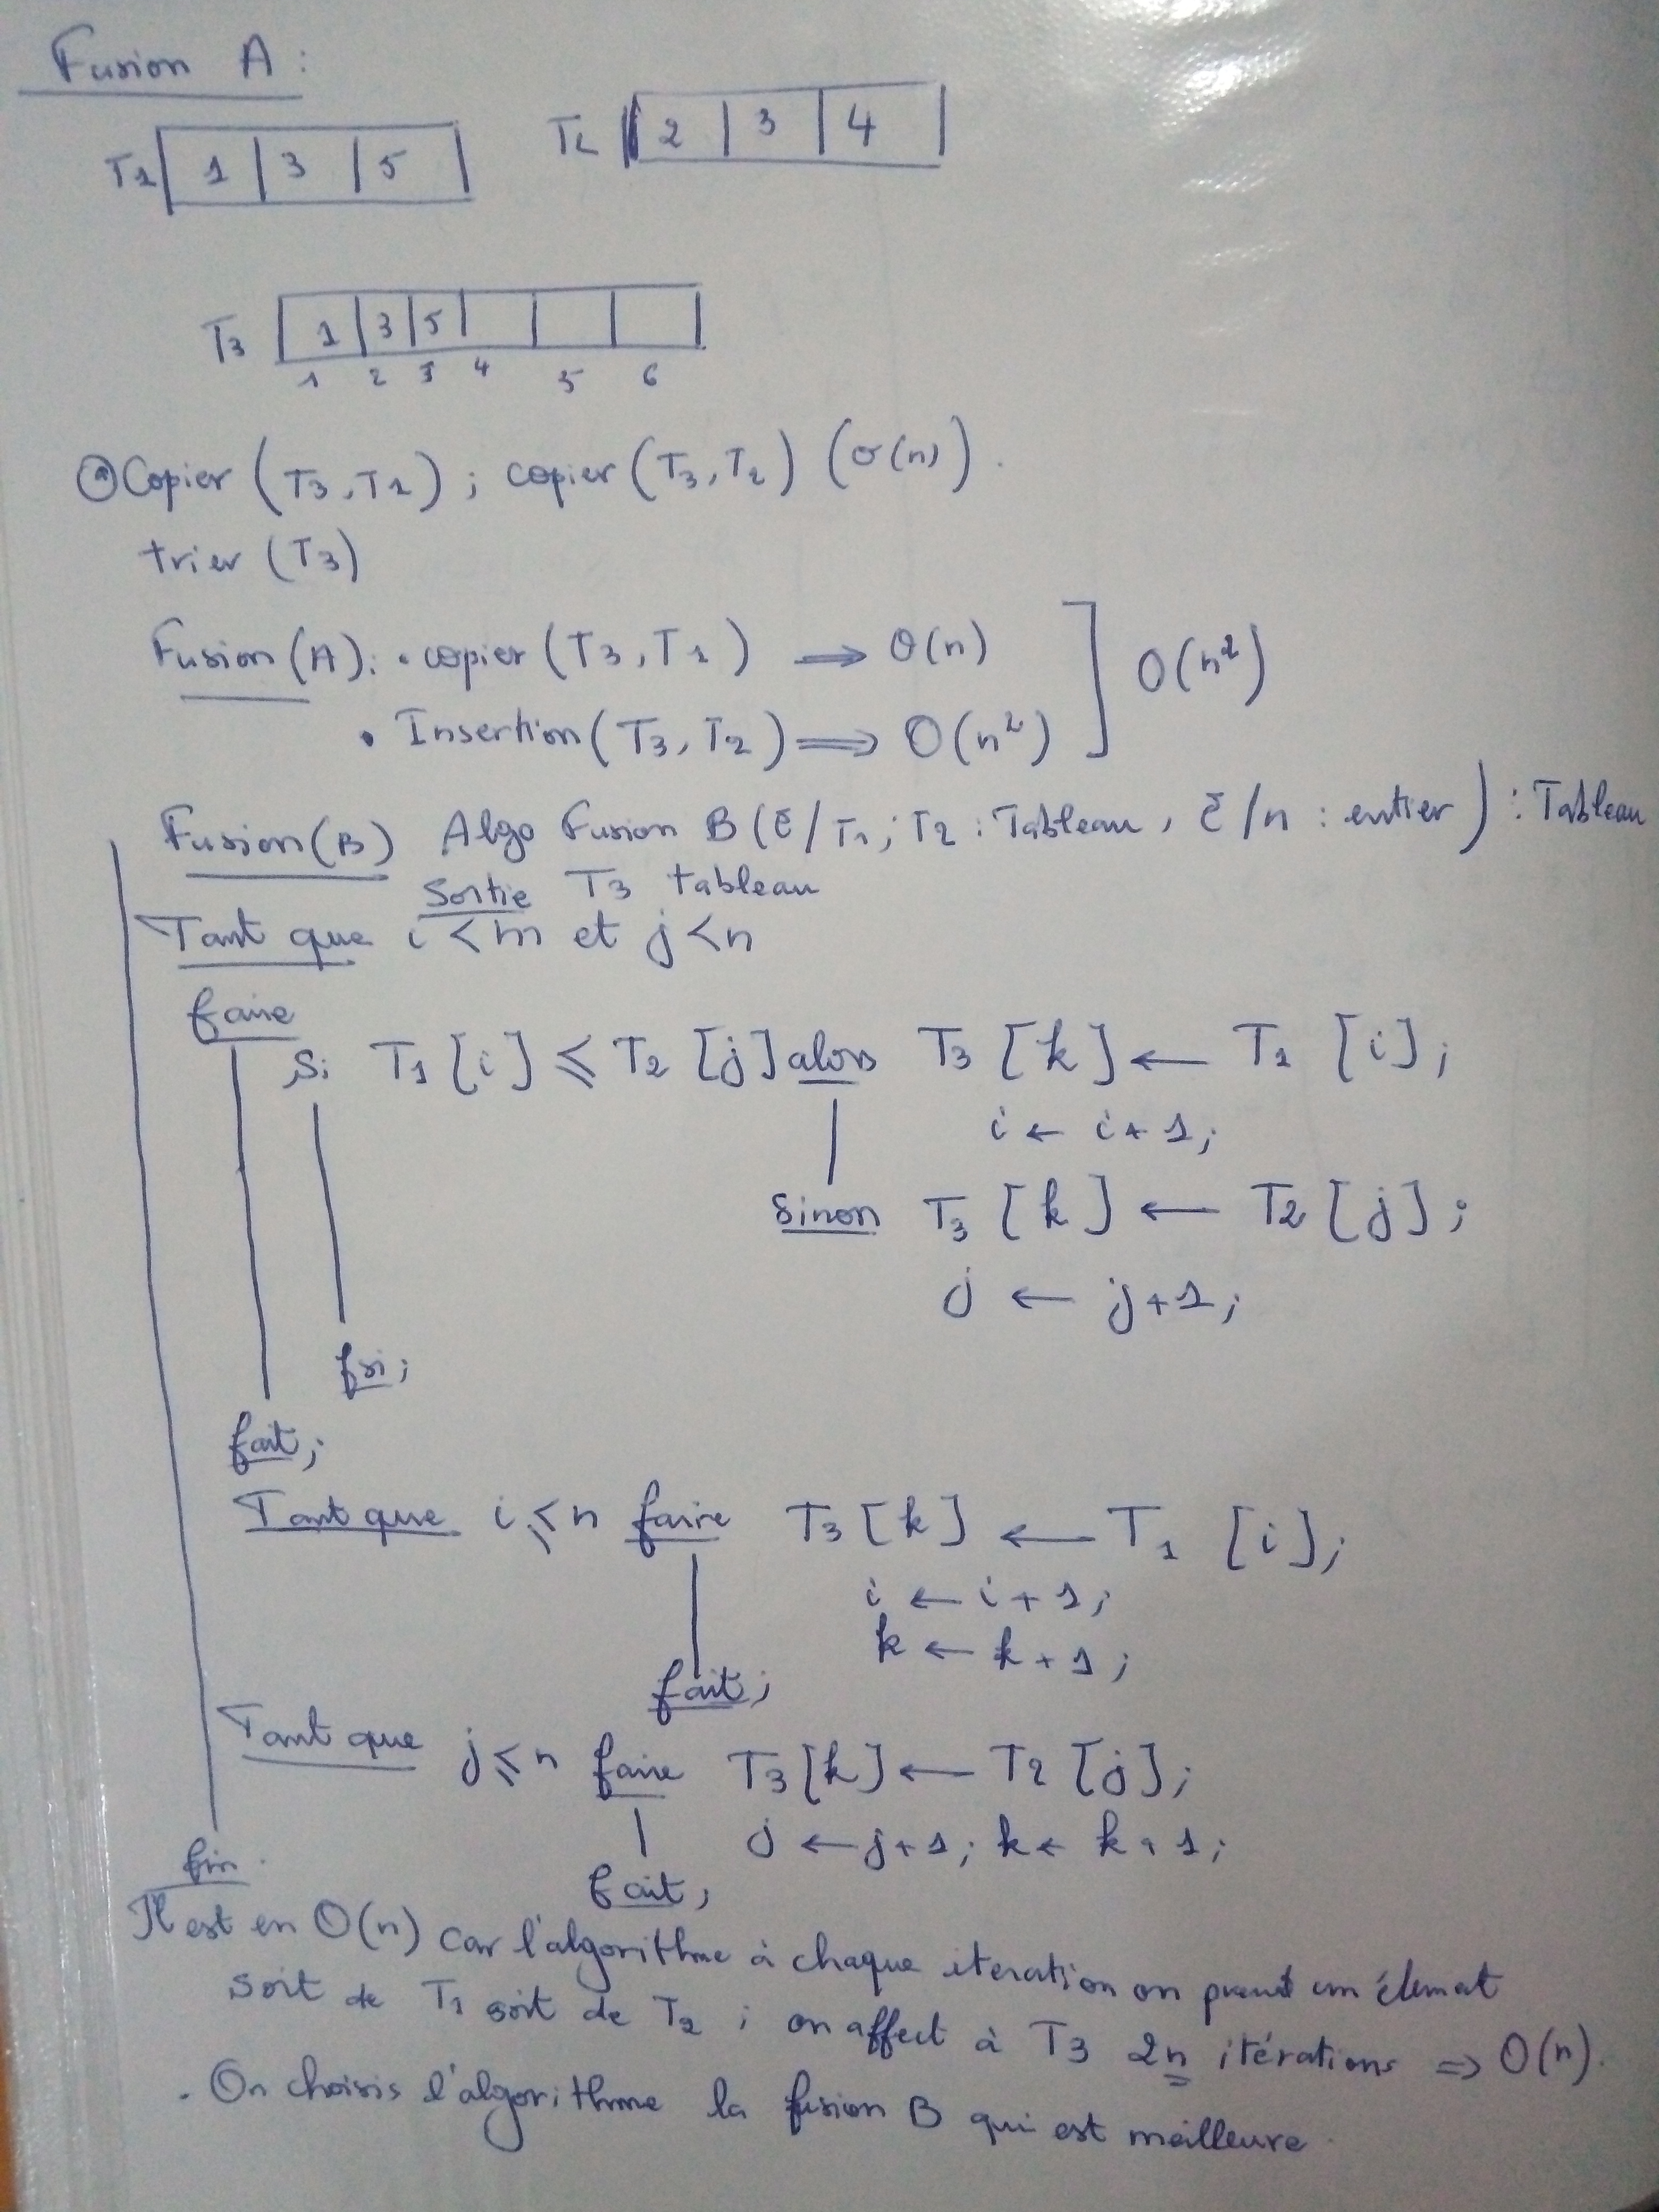 Fusion A :
T1 | 1 | 3 | 5 |
T2 | 2 | 3 | 4 |
T3 | 1 | 3 | 5 | | | |
1 2 3 4 5 6
Copier (T3, T1) ; copier (T3, T2) (O(n)).
trier (T3)
Fusion (A) : • copier (T3, T1) ⟹ O(n)
• Insertion (T3, T2) ⟹ O(n²) ] O(n²)
Fusion (B) Algo Fusion B (E/ T1 ; T2 : Tableau, E/n : entier) : Tableau
Sortie T3 tableau
Tant que i < m et j < n
faire
Si T1 [i] ⩽ T2 [j] alors T3 [k] ← T1 [i] ;
i ← i + 1 ;
sinon T3 [k] ← T2 [j] ;
j ← j + 1 ;
fsi ;
fait ;
Tant que i ⩽ n faire T3 [k] ← T1 [i] ;
i ← i + 1 ;
k ← k + 1 ;
fait ;
Tant que j ⩽ n faire T3 [k] ← T2 [j] ;
j ← j + 1 ; k ← k + 1 ;
fait ;
fin.
Il est en O(n) car l'algorithme à chaque iteration on prend un élemat
soit de T1 soit de T2 ; on affect à T3 2n itérations ⇒ O(n).
. On choisis l'algorithme la fusion B qui est meilleure.